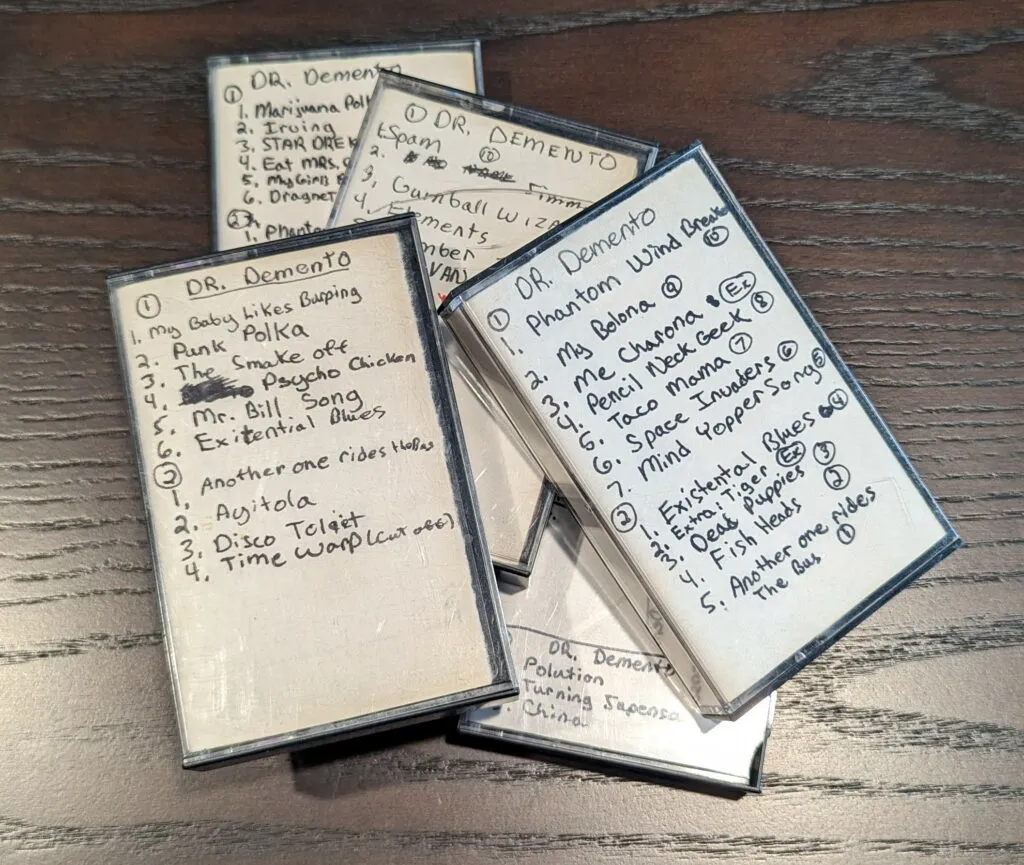 DR. Demento
①
1. Marijuana Pol
2. Irving
3. STAR DREK
4. Eat MRS.
5. My Girls
6. Dragnet
②
1. Phanto
① DR. DEMENTO
1. Spam ⑩
2.
3. Gumball WIZA
4. Elements
VAN
DR. Demento
①
1. My Baby Likes Burping
2. Punk Polka
3. The Smoke off
4. Psycho Chicken
5. Mr. Bill Song
6. Exitential Blues
②
1. Another one rides the Bus
2. Ayitola
3. Disco Tolqet
4. Time Warp (Cut off)
DR. Demento
①
1. Phantom Wind Breaker ⑩
2. My Bolona ⑨
3. Me Charona 8 Ex
4. Pencil Neck Geek ⑧
6. Taco Mama ⑦
6. Space Invaders ⑥
7. Mind Yopper Song ⑤
②
1. Existental Blues ④
2. Extra! Tiger Ex
3. Dead Puppies ③
4. Fish Heads ②
5. Another one rides
The Bus ①
DR. Demento
Polution
Turning Japensa
China